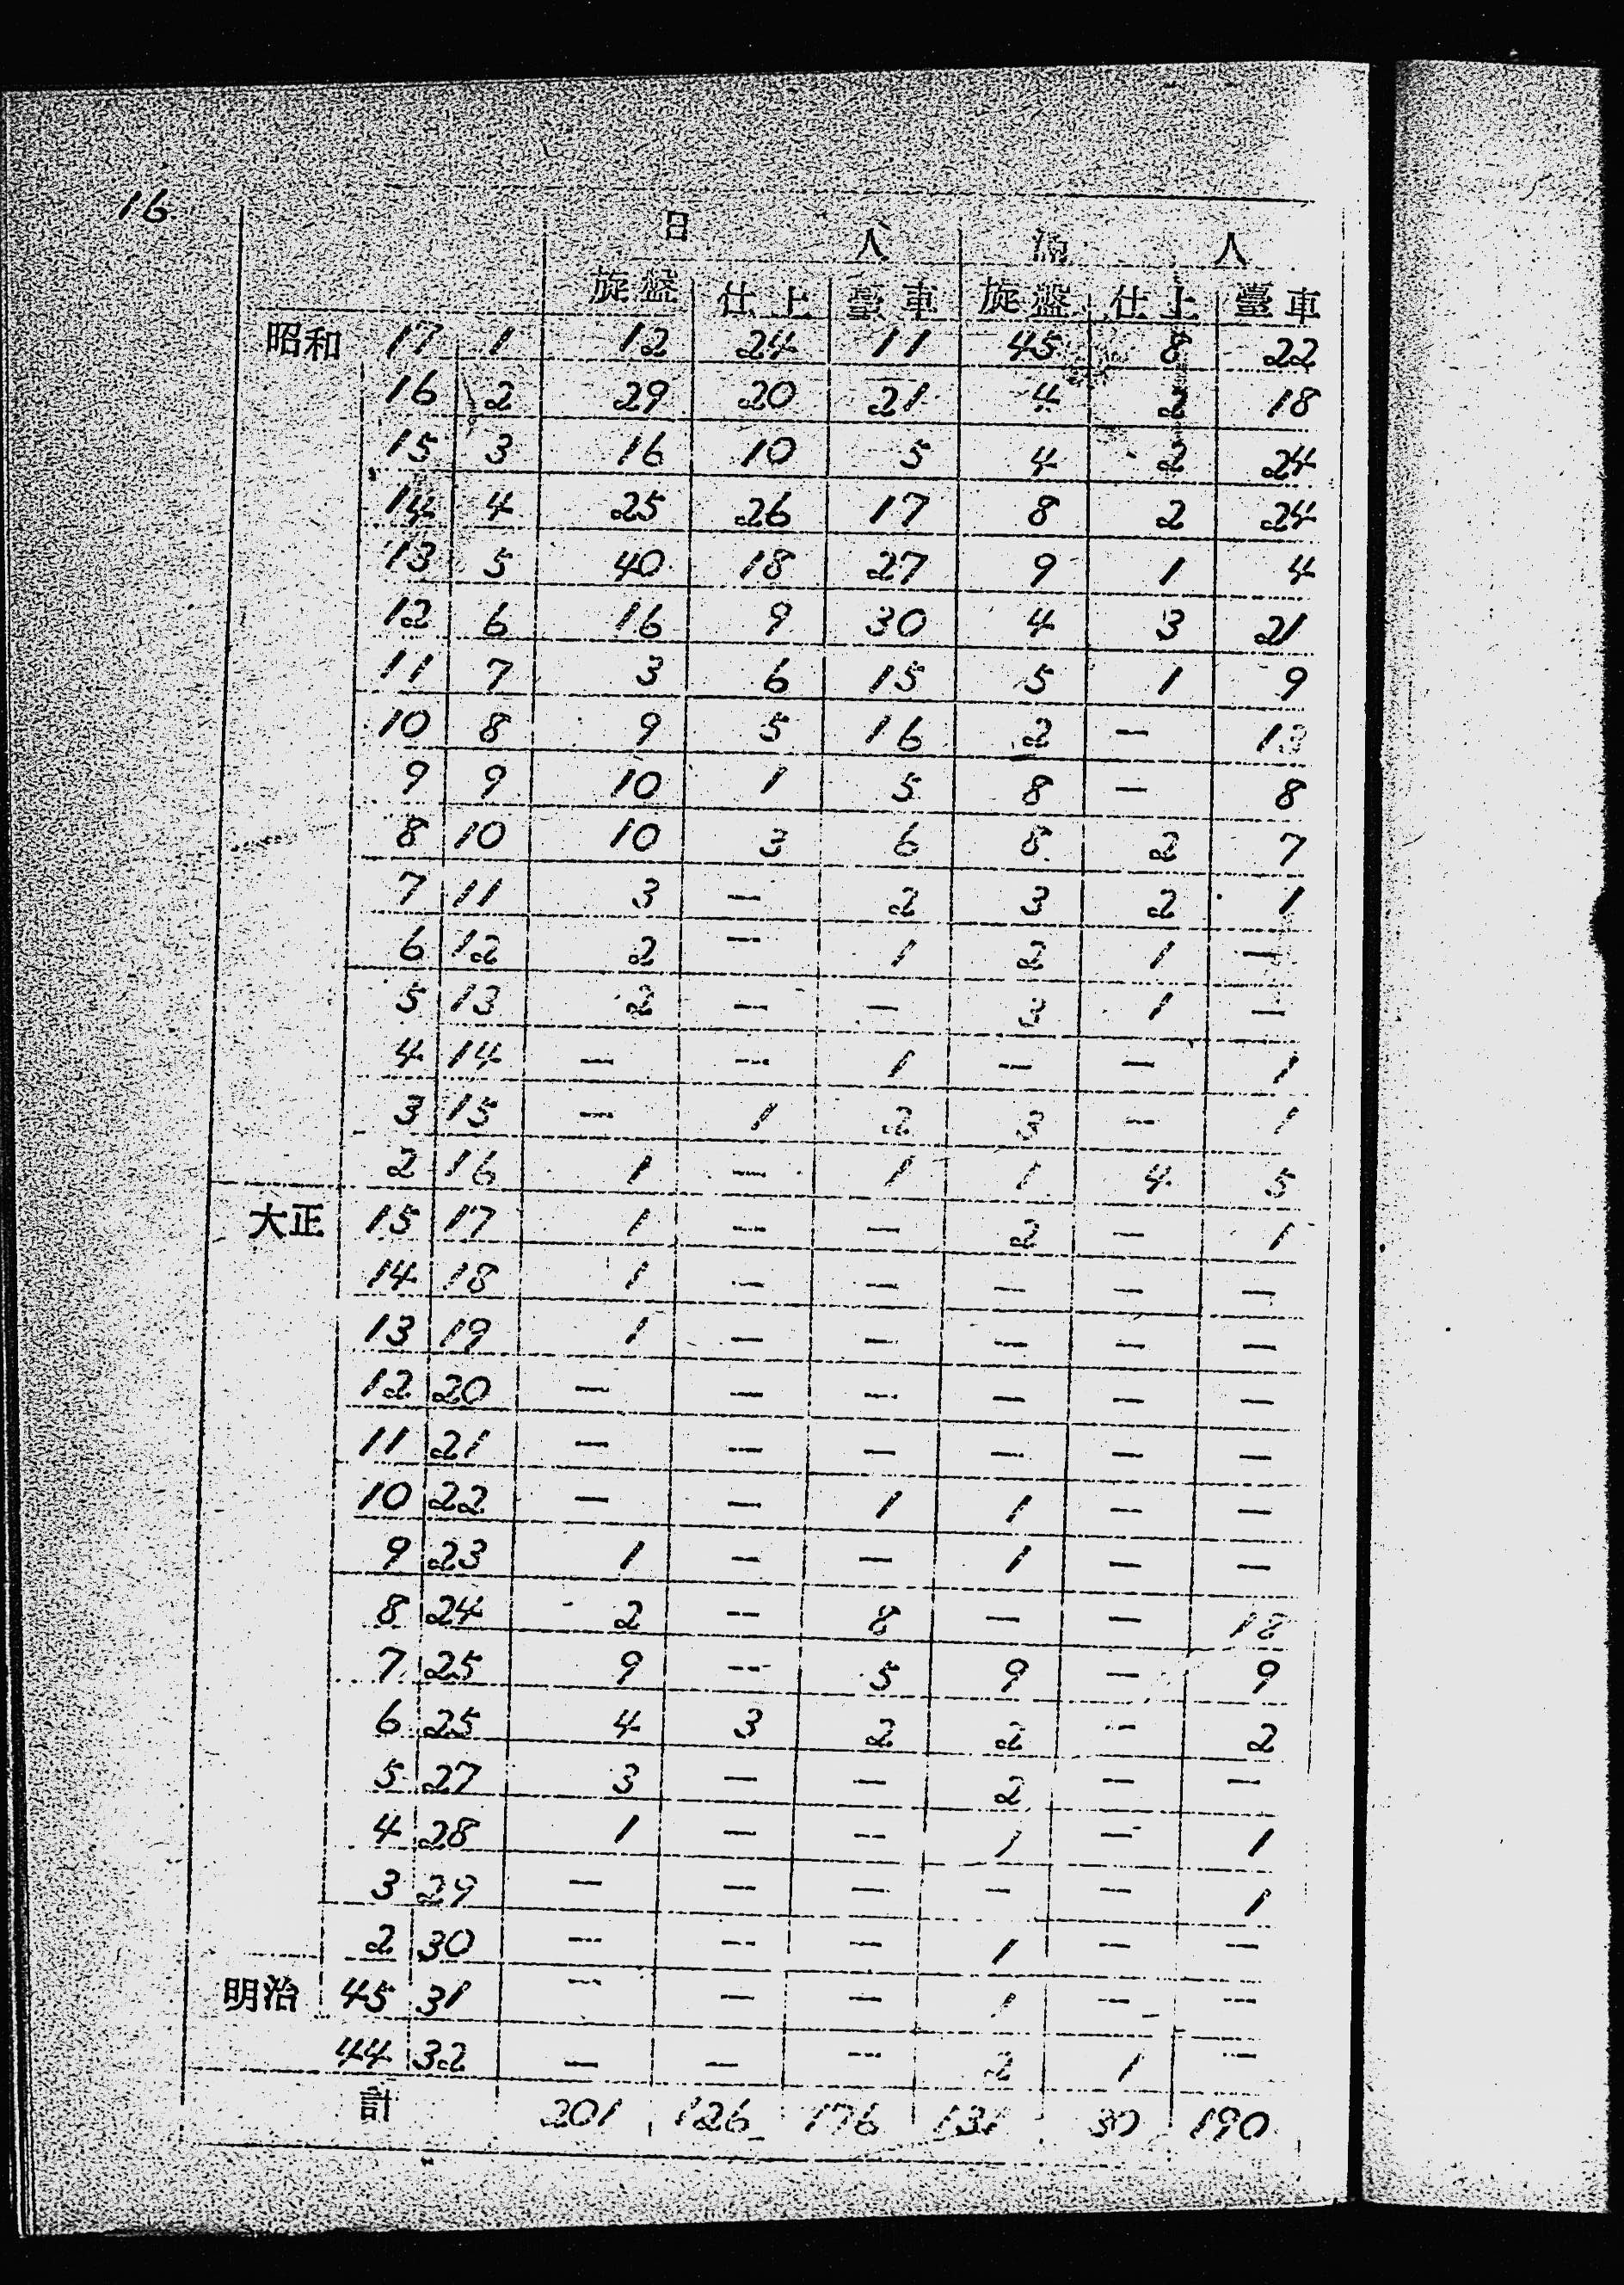 16.
日 人 満 人
旋盤 仕上 臺車 旋盤 仕上 臺車
昭和 17 1 12 24 11 45 8 22
16 2 29 20 21 4 2 18
15 3 16 10 5 4 2 24
14 4 25 26 17 8 2 24
13 5 40 18 27 9 1 4
12 6 16 9 30 4 3 21
11 7 3 6 15 5 1 9
10 8 9 5 16 2 — 13
9 9 10 1 5 8 — 8
8 10 10 3 6 8 2 7
7 11 3 — 2 3 2 1
6 12 2 — 1 2 1 —
5 13 2 — — 3 1 —
4 14 — — 1 — — 1
3 15 — 1 2 3 — 1
2 16 1 — 1 1 4 5
大正 15 17 1 — — 2 — 1
14 18 1 — — — — —
13 19 1 — — — — —
12 20 — — — — — —
11 21 — — — — — —
10 22 — — 1 1 — —
9 23 1 — — 1 — —
8 24 2 — 8 — — 18
7 25 9 — 5 9 — 9
6 25 4 3 2 2 — 2
5 27 3 — — 2 — —
4 28 1 — — 1 — 1
3 29 — — — — — 1
2 30 — — — 1 — —
明治 45 31 — — — 1 — —
44 32 — — — 2 1 —
計 201 126 176 131 30 190